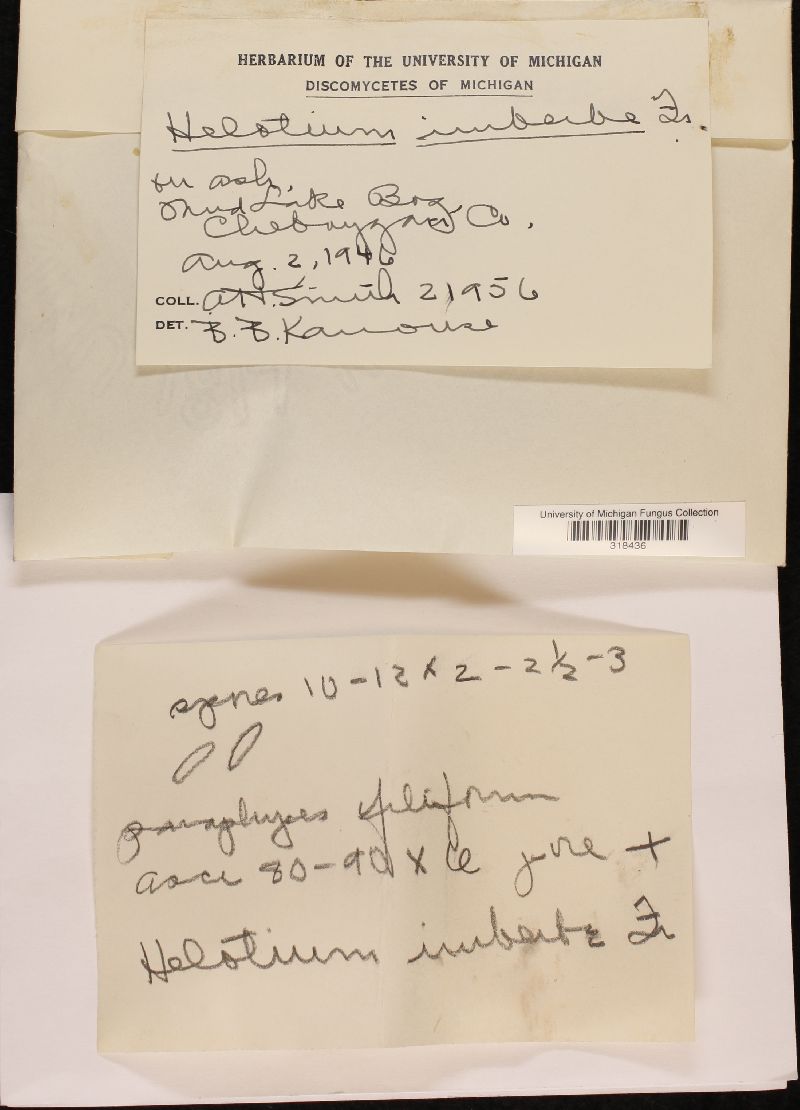 HERBARIUM OF THE UNIVERSITY OF MICHIGAN
DISCOMYCETES OF MICHIGAN
Helotium imberbe Fr.
on ash,
Mud Lake Bog
Cheboygan Co.
Aug. 2, 1946
COLL. A.H. Smith 21956
DET. B.B. Kanouse
University of Michigan Fungus Collection
318436
spores 10-12 x 2-2½-3
paraphyses filiform
asci 80-90 x 6 pore +
Helotium imberbe Fr